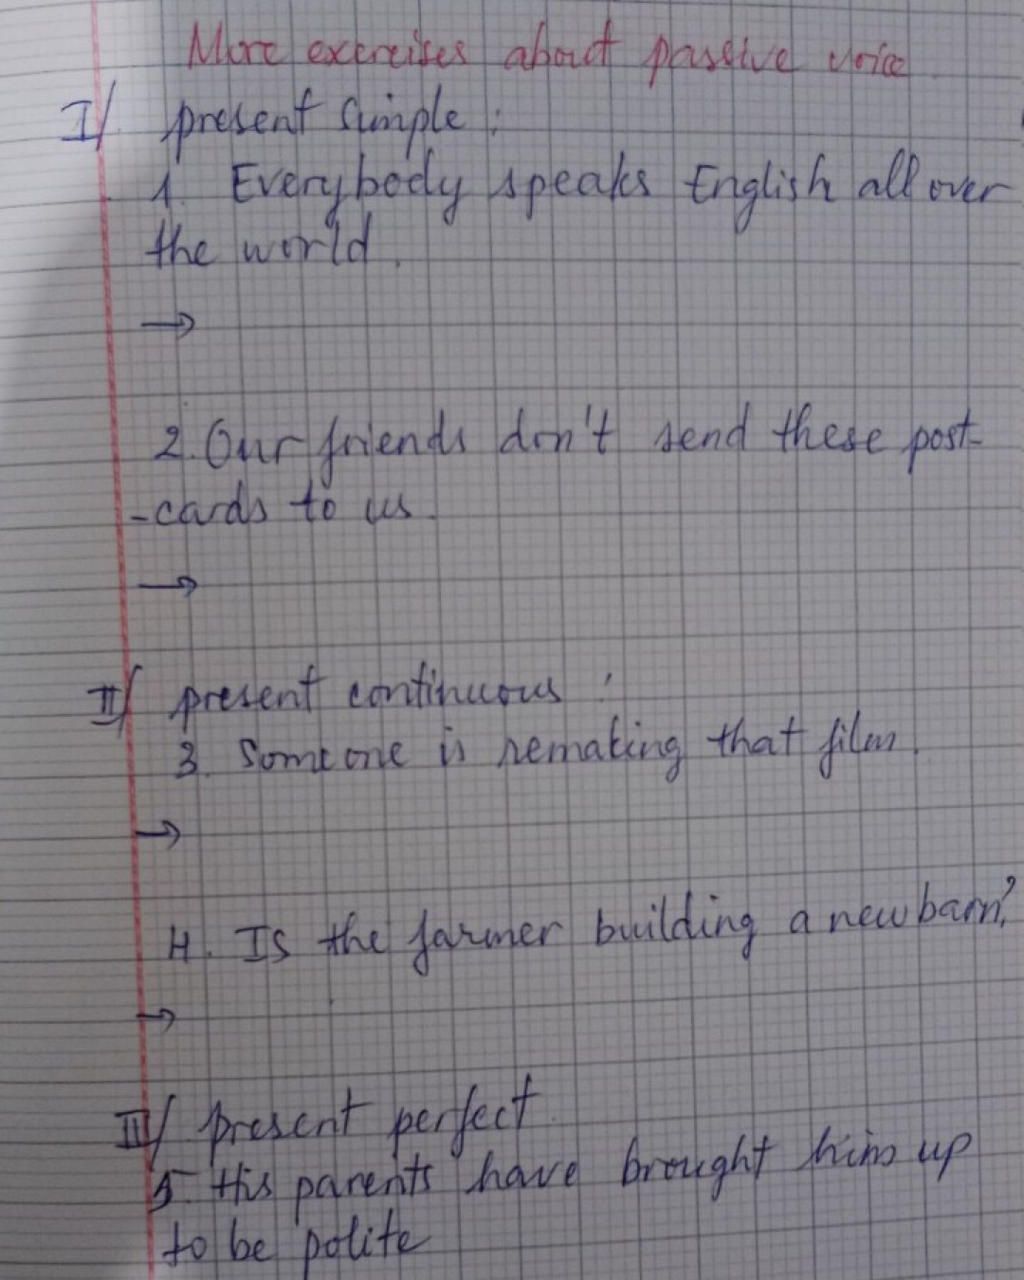 More exercises about passive voice
I/ present simple :
1. Everybody speaks English all over
the world.
→
2. Our friends don't send these post-
-cards to us.
→
II/ present continuous :
3. Someone is remaking that film.
→
4. Is the farmer building a new barn?
→
III/ present perfect.
5. His parents have brought him up
to be polite